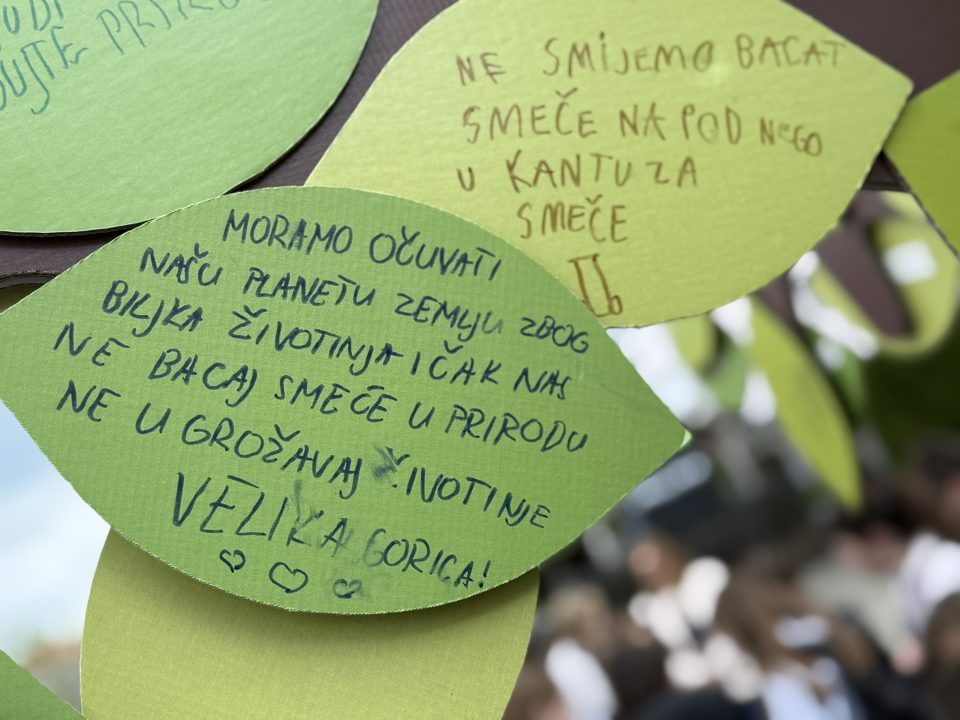 NE SMIJEMO BACAT
SMEČE NA POD NEGO
U KANTU ZA
SMEČE
MORAMO OČUVATI
NAŠU PLANETU ZEMLJU ZBOG
BILJKA ŽIVOTINJA I ČAK NAS
NE BACAJ SMEČE U PRIRODU
NE UGROŽAVAJ ŽIVOTINJE
VELIKA GORICA!